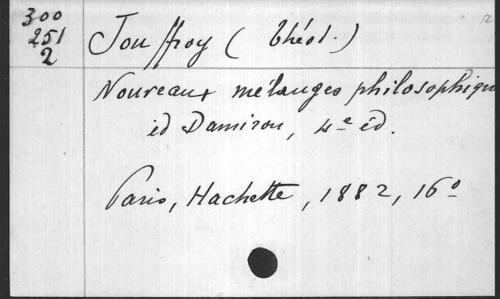 300
251
2
Jouffroy (Théod.)
Nouveaux mélanges philosophiqu
éd Damiron, 4e éd.
Paris, Hachette, 1882, 16º